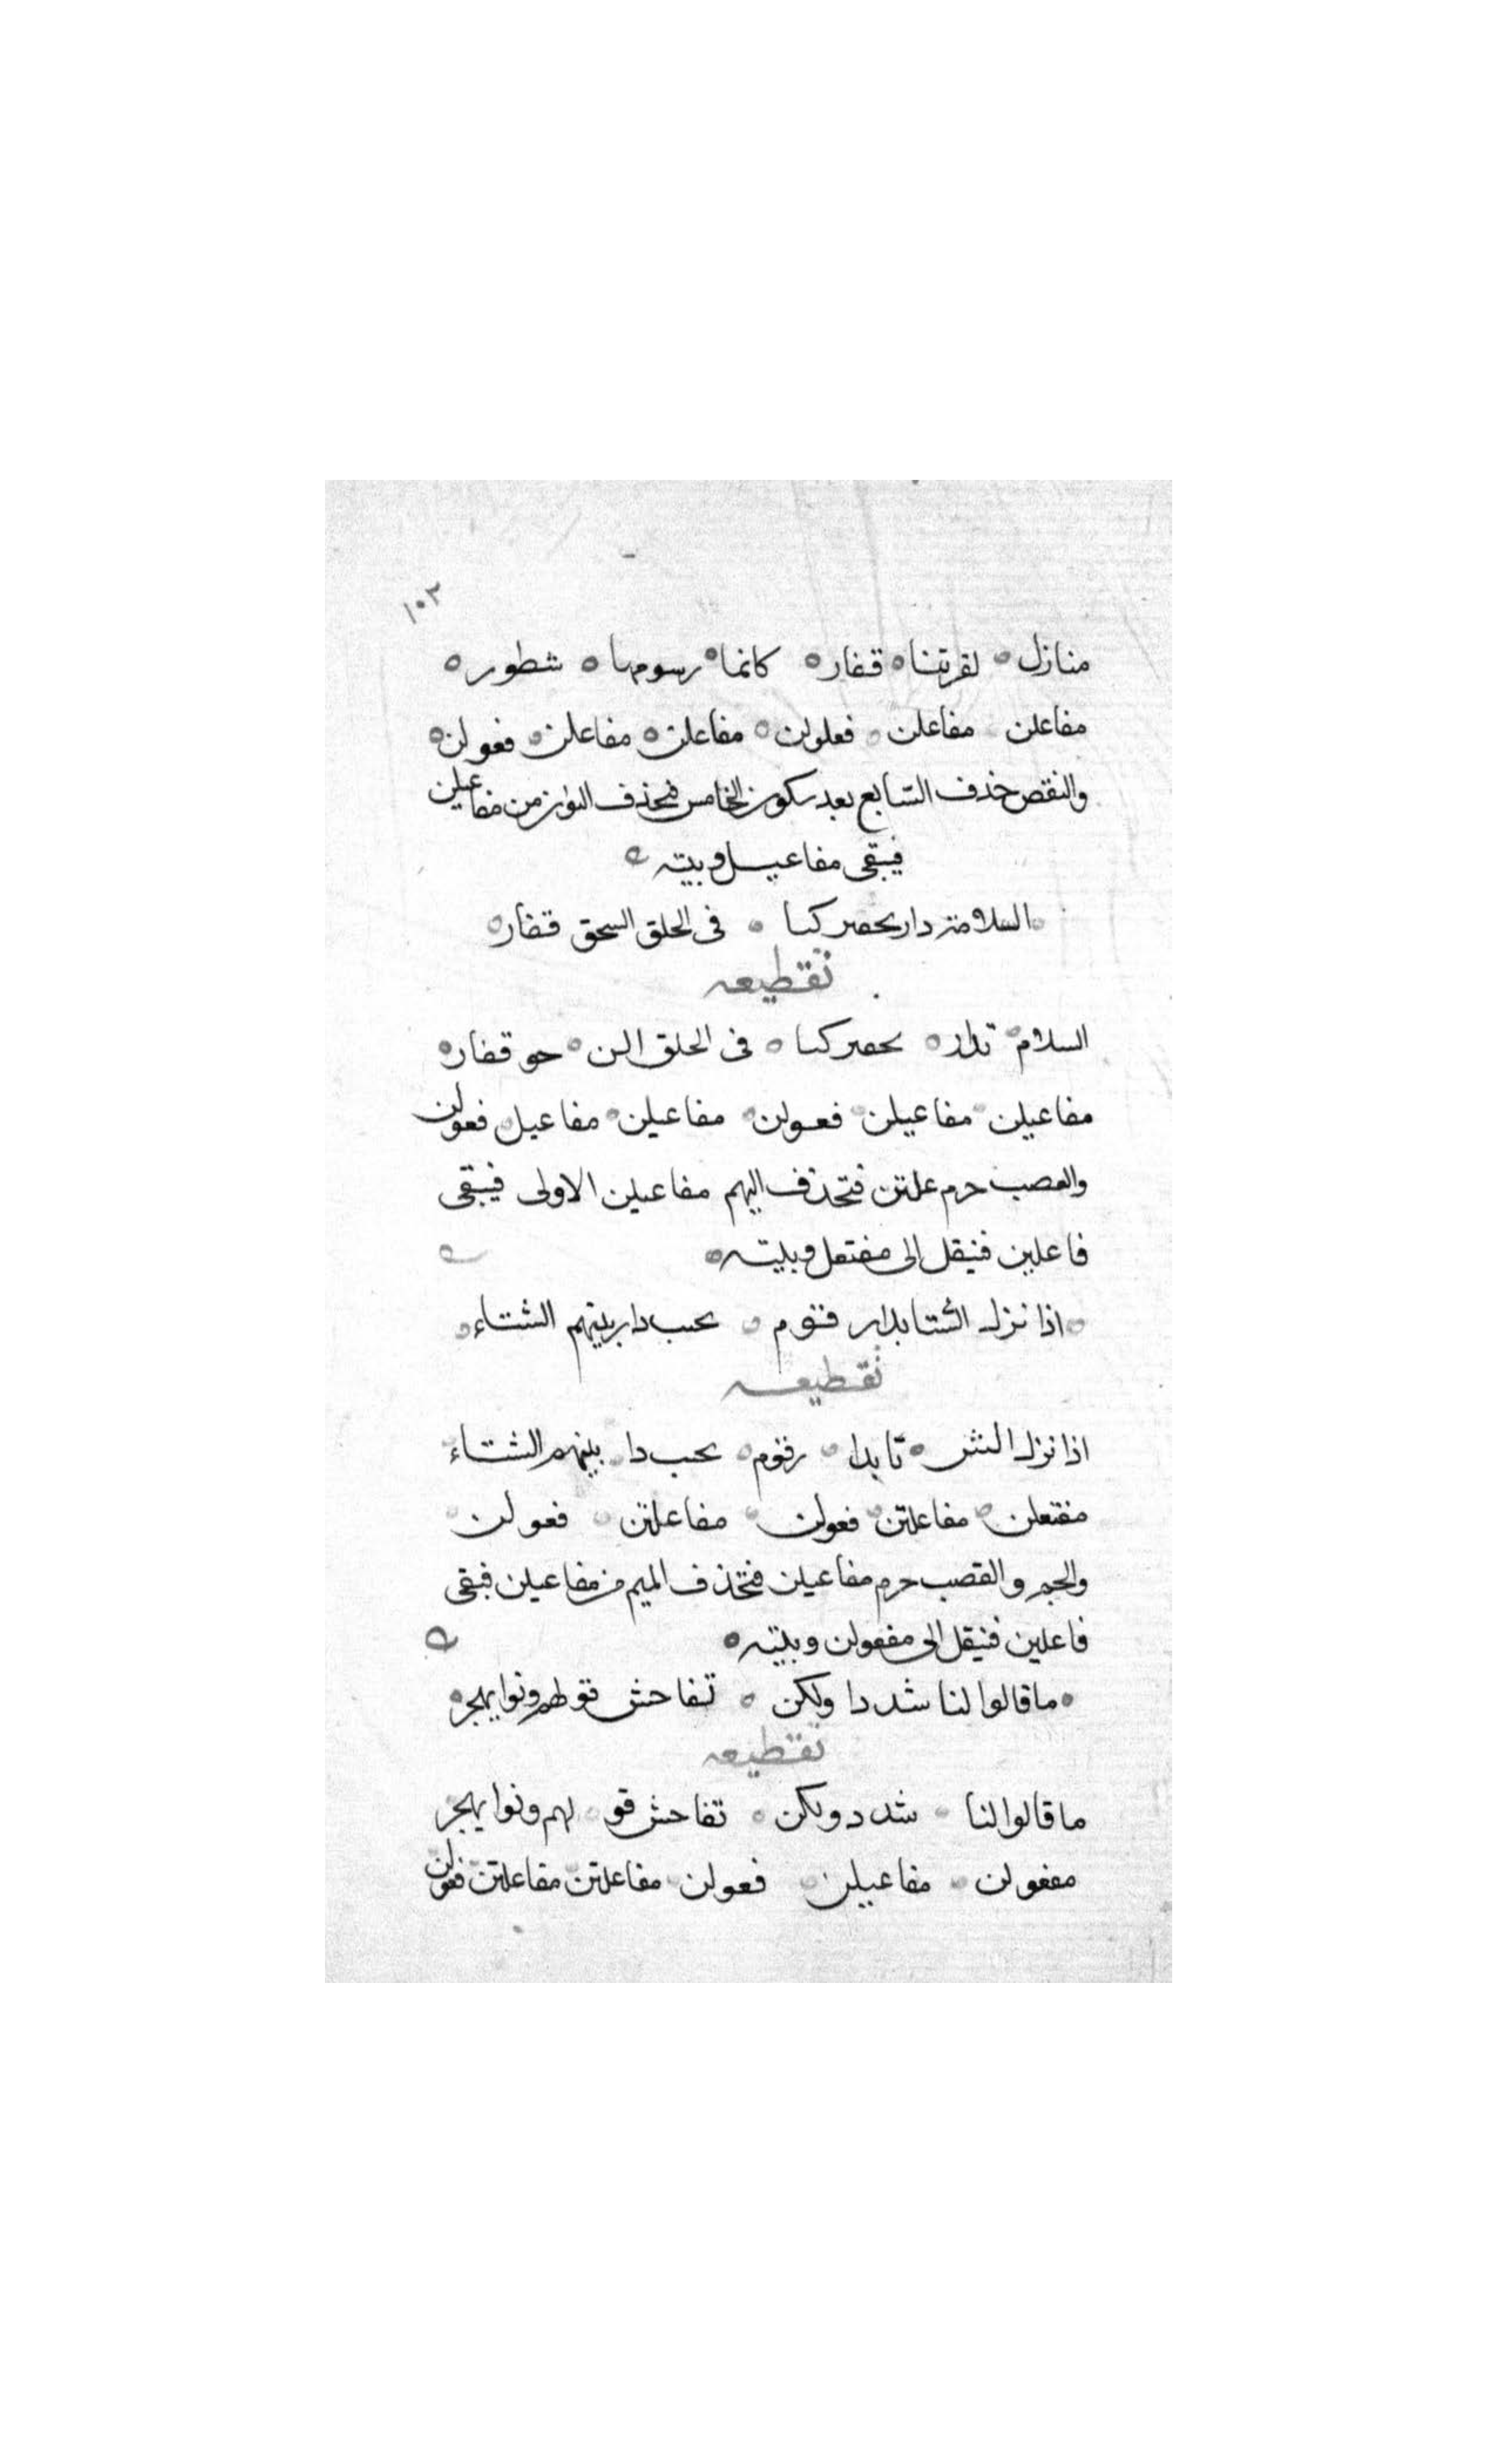 ١٠٣
منازل ه لفرتنا ه قفار ه كانما ه رسومها ه شطور ه
مفاعلن مفاعلن ه فعلولن ه مفاعلن ه مفاعلن ه فعولن ه
والنقص حذف السابع بعد سكون الخامس فتحذف النون من مفاعيلن
فيبقى مفاعيل وبيته
السلامة دار بحصر كنا ه فى الحلق السحق قفار ه
تقطيعه
السلام ه تدار ه بحصر كنا ه فى الحلق الن ه حو قفار ه
مفاعيلن ه مفاعيلن ه فعولن ه مفاعيلن ه مفاعيل فعولن
والعصب حرم علتن فتحذف اليم مفاعيلن الاولى فيبقى
فاعلين فينقل الى مفتعل وبيته ه
ه اذا نزل الشتا بدار قوم ه بحب دار بينهم الشتاء ه
تقطيعه
اذا نزل الش ه تا بدا ه رقوم ه بحب دا ه بينهم الشتاء
مفتعلن ه مفاعلتن ه فعولن ه مفاعلتن ه فعولن ه
والجم والقصب حرم مفاعيلن فتحذف الميم من مفاعيلن فبقى
فاعلين فينقل الى مفعولن وبيته ه
ه ما قالوا لنا شددا ولكن ه تفاحش قولهم ونوا بهجر ه
تقطيعه
ما قالوا لنا ه شدد ولكن ه تفاحش قو ه لهم ونوا بهجر
مفعولن ه مفاعيلن ه فعولن ه مفاعلتن مفاعلتن فعولن